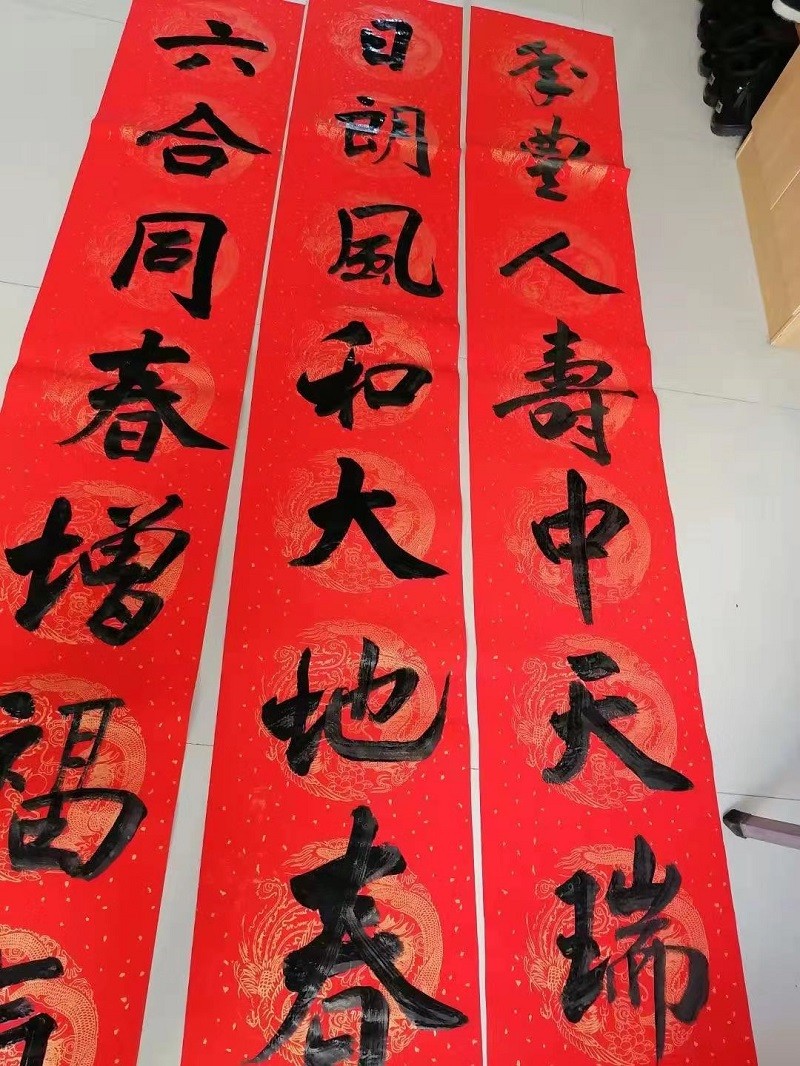 秊豐人壽中天瑞
日朗風和大地春
六合同春增福